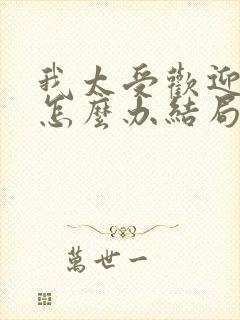 我太受歡迎
怎麼办結局
萬世一